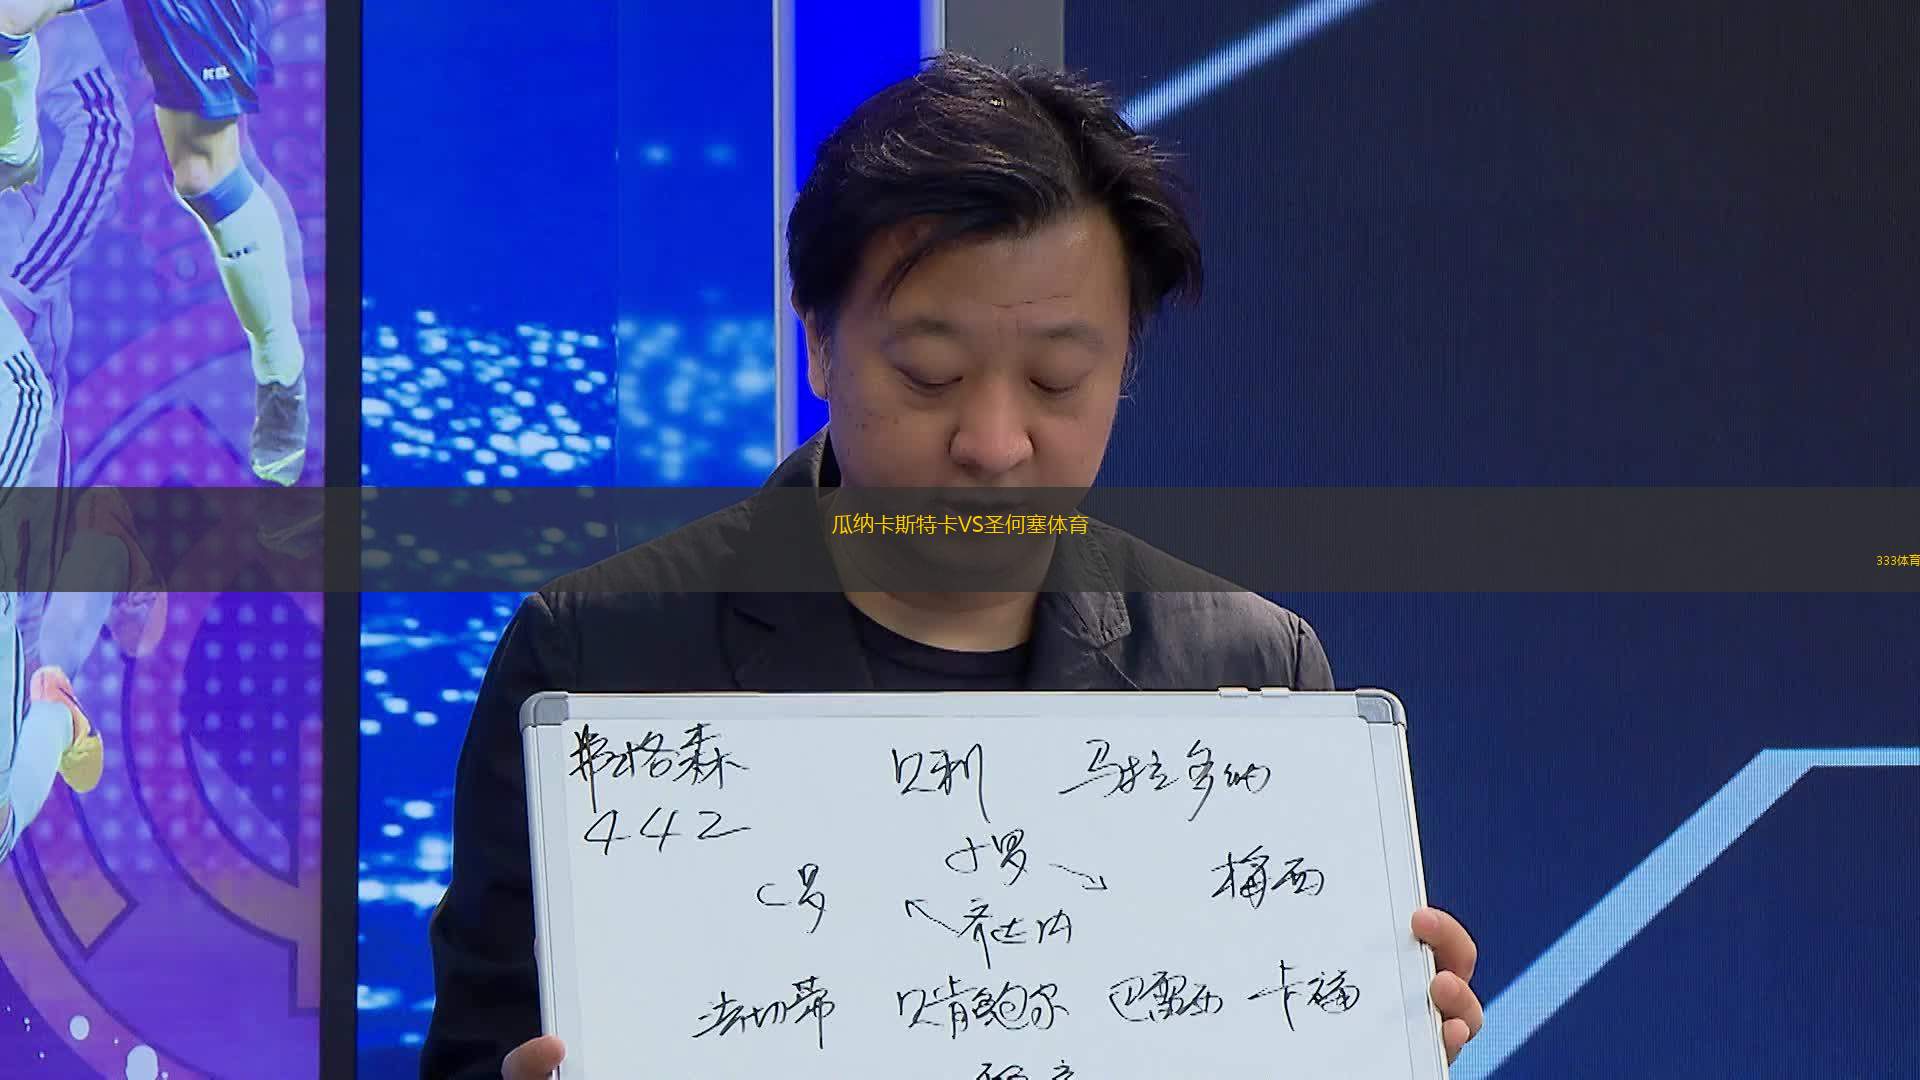 瓜纳卡斯特卡VS圣何塞体育
333体育
弗格森 贝利 马拉多纳
442
小罗
C罗 梅西
齐达内
法切蒂 贝肯鲍尔 巴雷西 卡福